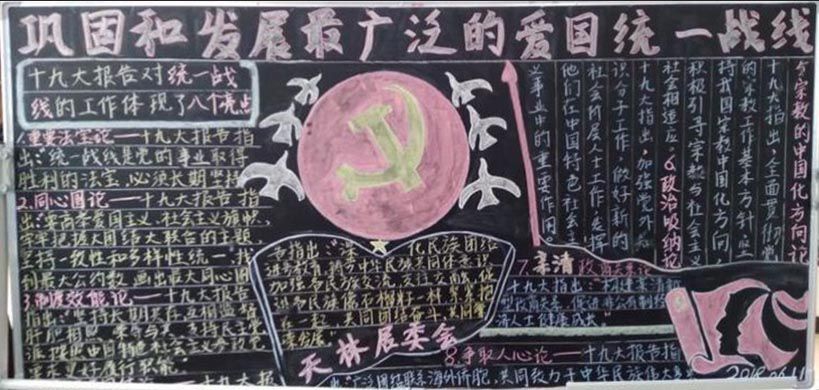 巩固和发展最广泛的爱国统一战线
十九大报告对统一战
线的工作体现了八个亮点
重要法宝论——十九大报告指
出:“统一战线是党的事业取得
胜利的法宝,必须长期坚持
2.同心圆论——十九大报告指
出:要高举爱国主义、社会主义旗帜,
牢牢把握大团结大联合的主题,
坚持一致性和多样性统一,找
到最大公约数,画出最大同心圆
3.
论——十九大报告
指出:“坚持长期共存、互相监督、
肝胆相照、
支持民主党
派按照中国特色社会主义参政党
要求更好履行职能”
告指出:“深
化民族团结
进步教育,铸牢中华民族共同体意识
加强各民族交往交流交融,促
进各民族像石榴籽一样紧紧抱
在一起,共同团结奋斗、共同繁
荣发展”
天林居委会
宗教的中国化方向论
十九大指出,全面贯彻党
的宗教工作基本方针,坚
持我国宗教中国化方向,
积极引导宗教与社会主义
社会相适应。6.政治吸纳论
十九大指出,加强党外知
识分子工作,做好新的
社会阶层人士工作,发挥
他们在中国特色社会主
义事业中的重要作用。
7.亲清政商关系论
十九大指出:“构建亲清新
型政商关系,促进非公有制经
济人士健康成长”
8.争取人心论——十九大报告指
出:“广泛团结联系海外侨胞,共同致力于中华民族伟大复兴